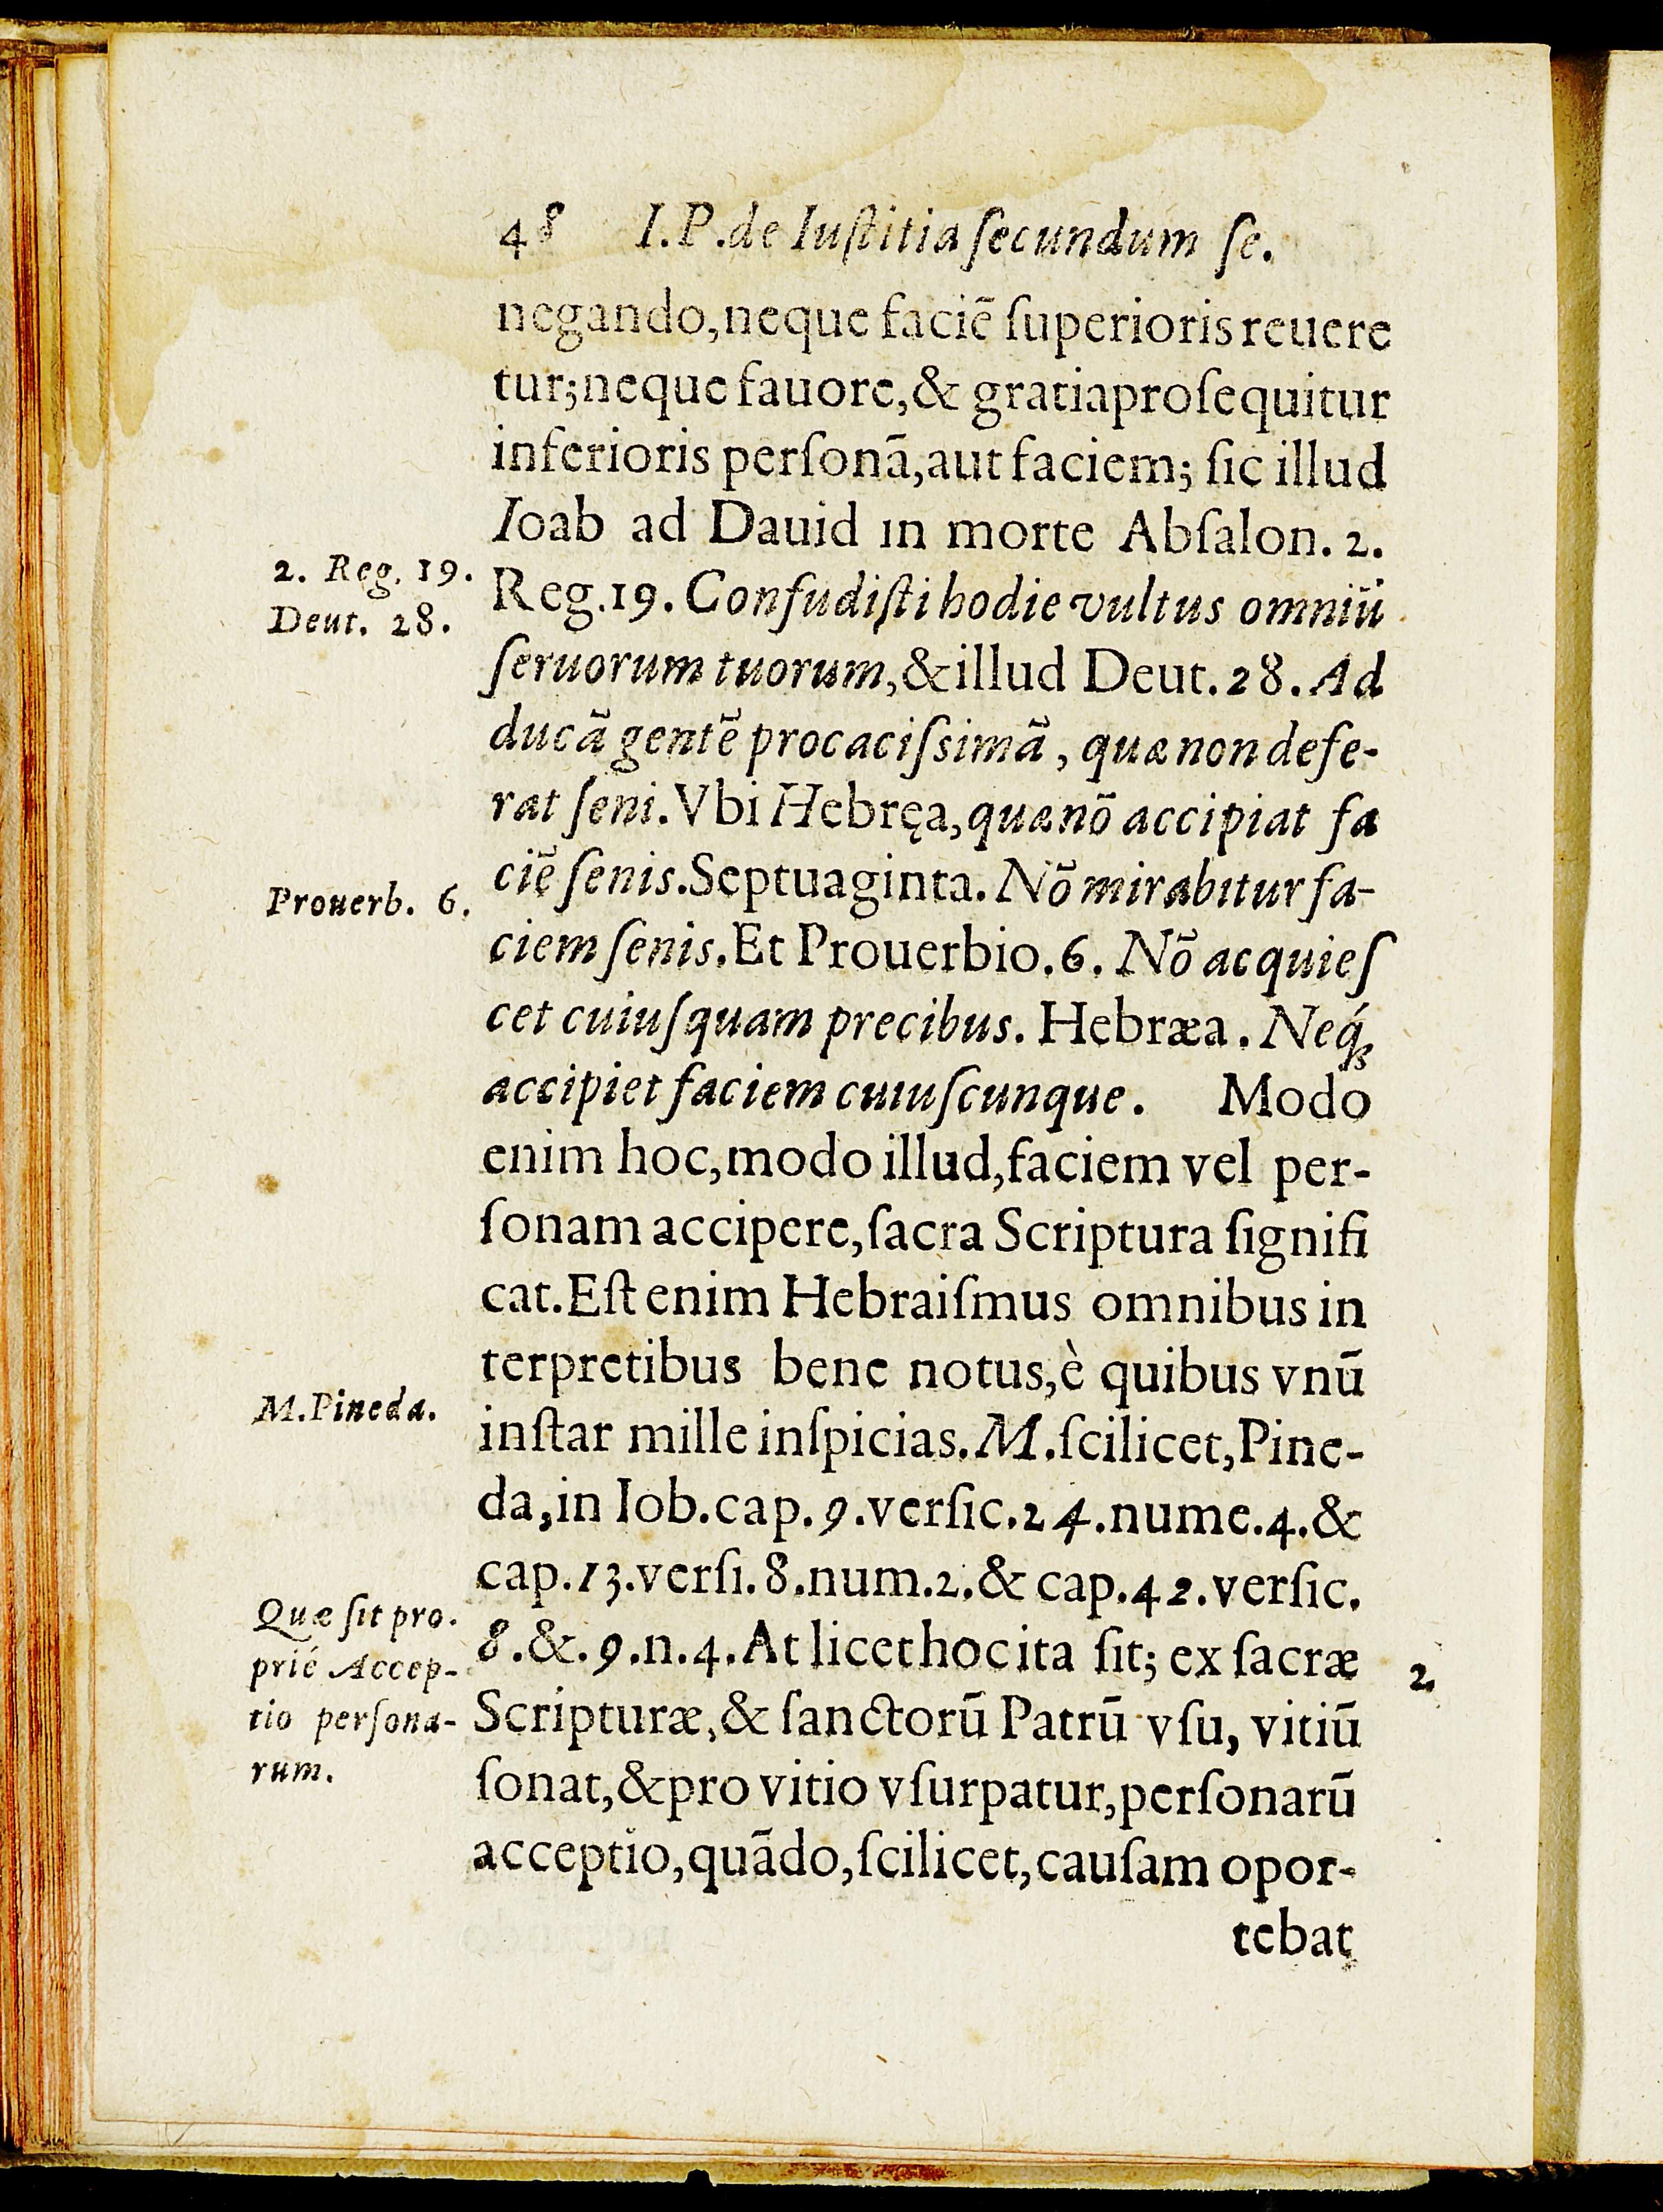 48 I.P.de Iuſtitia ſecundum ſe.
negando,neque faciē ſuperioris reuere
tur;neque fauore,& gratiaproſequitur
inferioris perſonā,aut faciem; ſic illud
Ioab ad Dauid in morte Abſalon. 2.
2. Reg. 19.
Reg.19. Confudiſti hodie vultus omniū
Deut. 28.
ſeruorum tuorum,&illud Deut.28. Ad
ducā gentē procaciſsimā, quæ non defe-
rat ſeni. Vbi Hebręa,quæ nō accipiat fa
ciē ſenis.Septuaginta. Nō mirabitur fa-
Prouerb. 6.
ciem ſenis. Et Prouerbio.6. Nō acquieſ
cet cuiuſquam precibus. Hebræa. Neq́;
accipiet faciem cuiuſcunque. Modo
enim hoc,modo illud,faciem vel per-
ſonam accipere,ſacra Scriptura ſignifi
cat.Eſt enim Hebraiſmus omnibus in
terpretibus bene notus,è quibus vnū
M.Pineda.
inſtar mille inſpicias. M.ſcilicet,Pine-
da,in Iob.cap.9.verſic.24.nume.4.&
cap.13.verſi.8.num.2.& cap.42.verſic.
8.&.9.n.4.At licet hoc ita ſit; ex ſacræ
2.
Scripturæ,& ſanctorū Patrū vſu, vitiū
ſonat,&pro vitio vſurpatur,perſonarū
acceptio,quādo,ſcilicet,cauſam opor-
Quæ ſit pro-
prié Accep-
tio perſona-
rum.
tebat